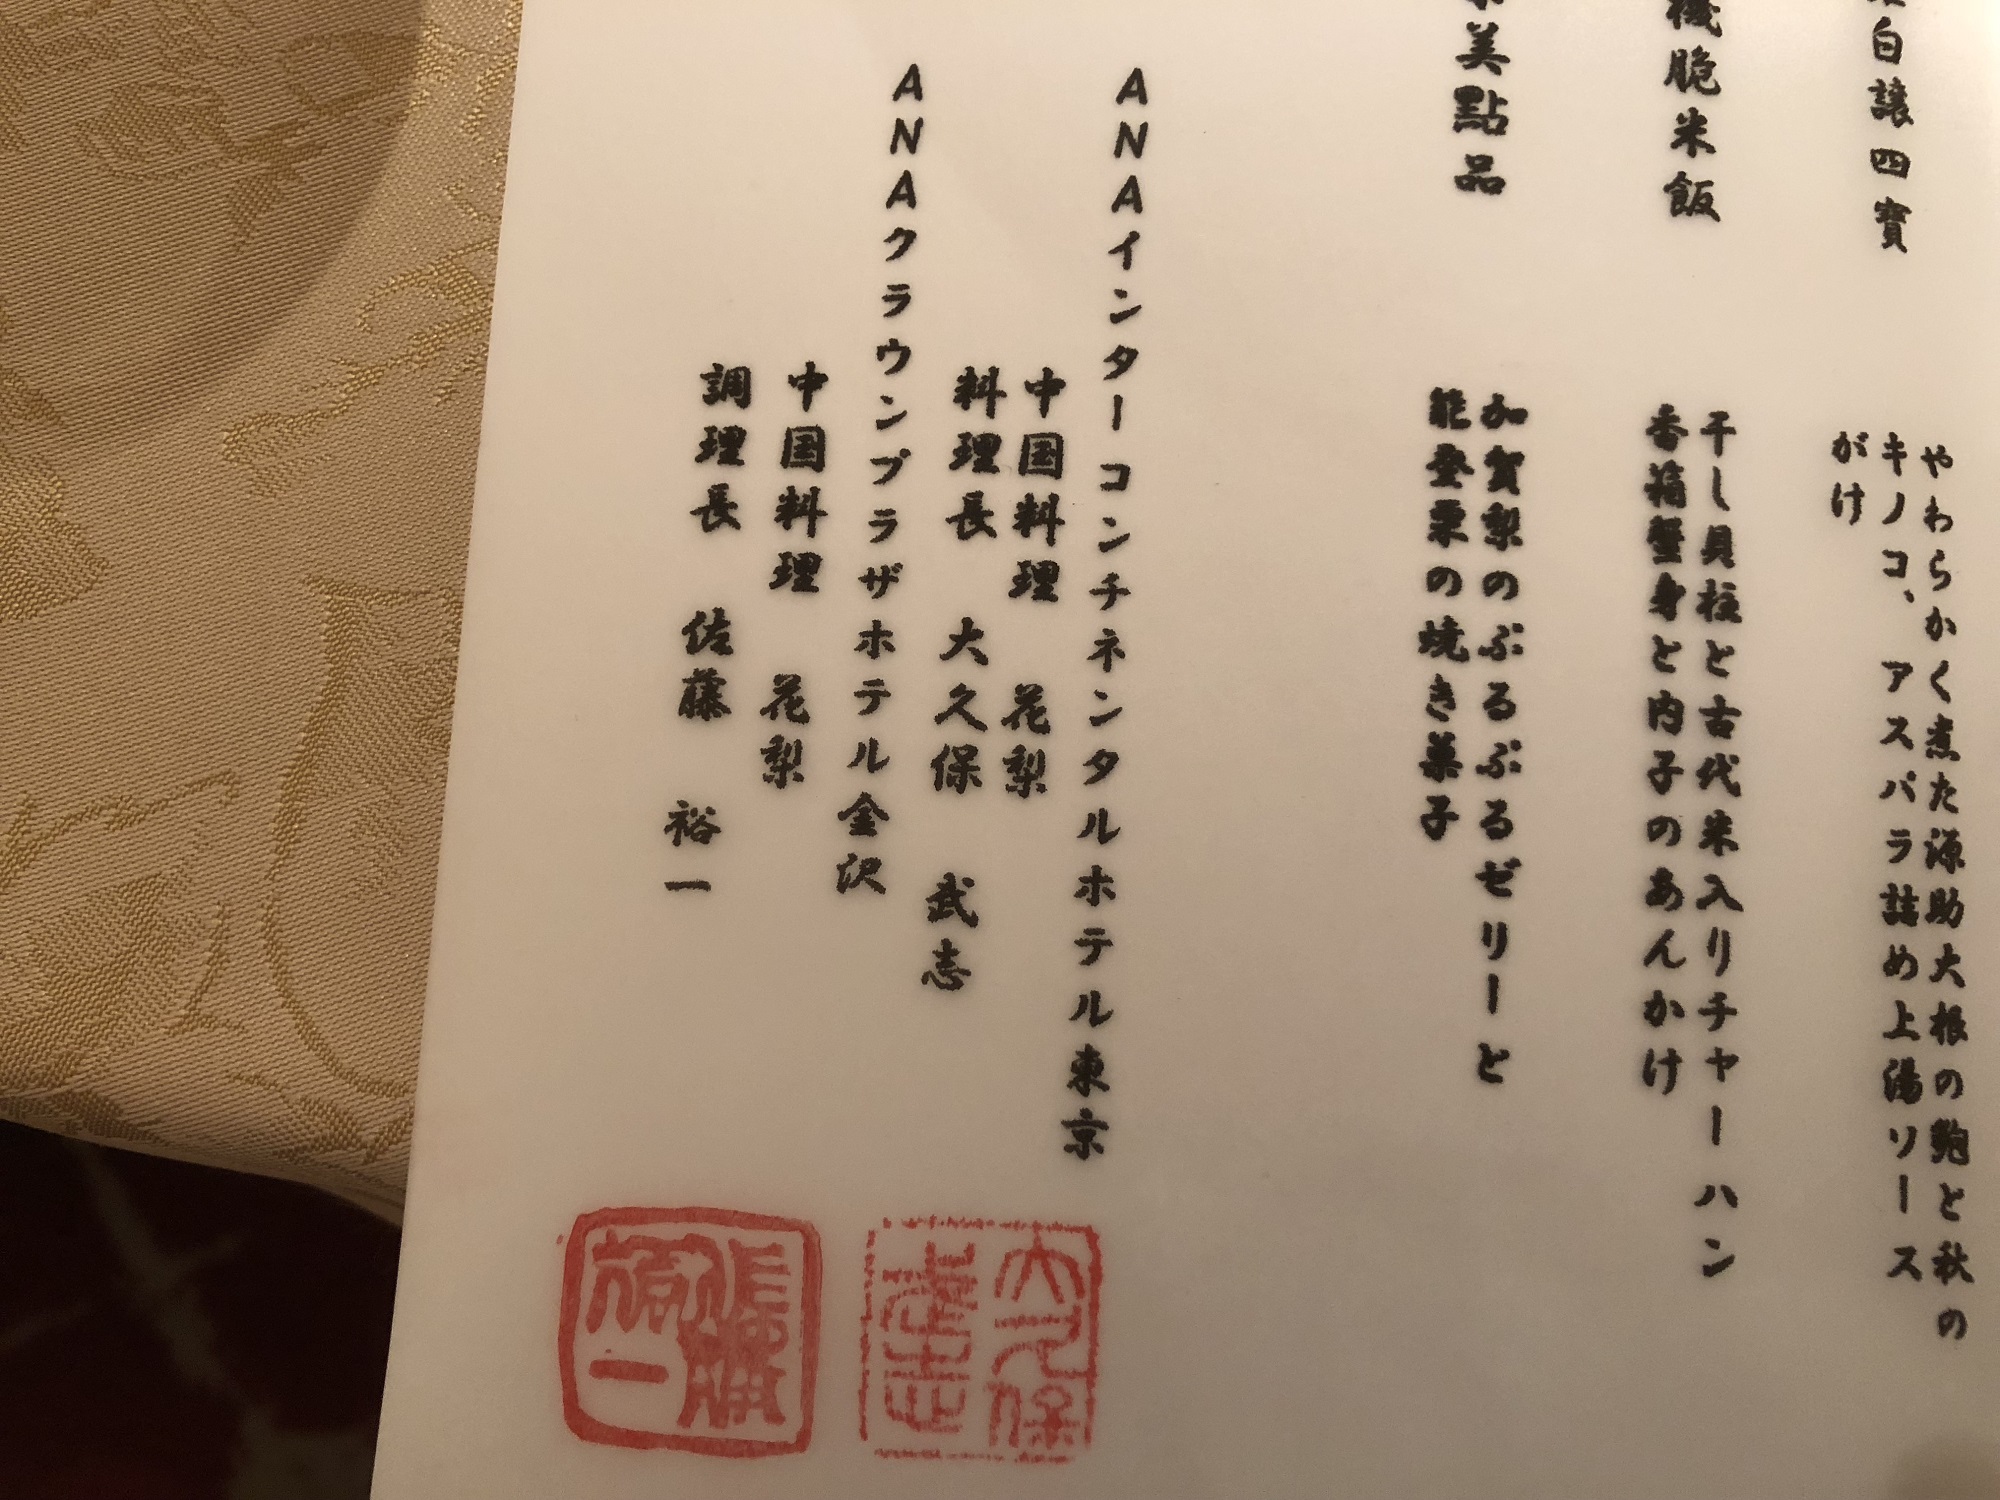 白譲四寳
やわらかく煮た源助大根の鮑と秋の
キノコ、アスパラ詰め上湯ソース
がけ
機脆米飯
干し貝柱と古代米入りチャーハン
香箱蟹身と内子のあんかけ
美點品
加賀梨のぷるぷるゼリーと
能登栗の焼き菓子
ANAインターコンチネンタルホテル東京
中国料理 花梨
料理長 大久保 武志
ANAクラウンプラザホテル金沢
中国料理 花梨
調理長 佐藤 裕一
大久保
武志
佐藤
裕一